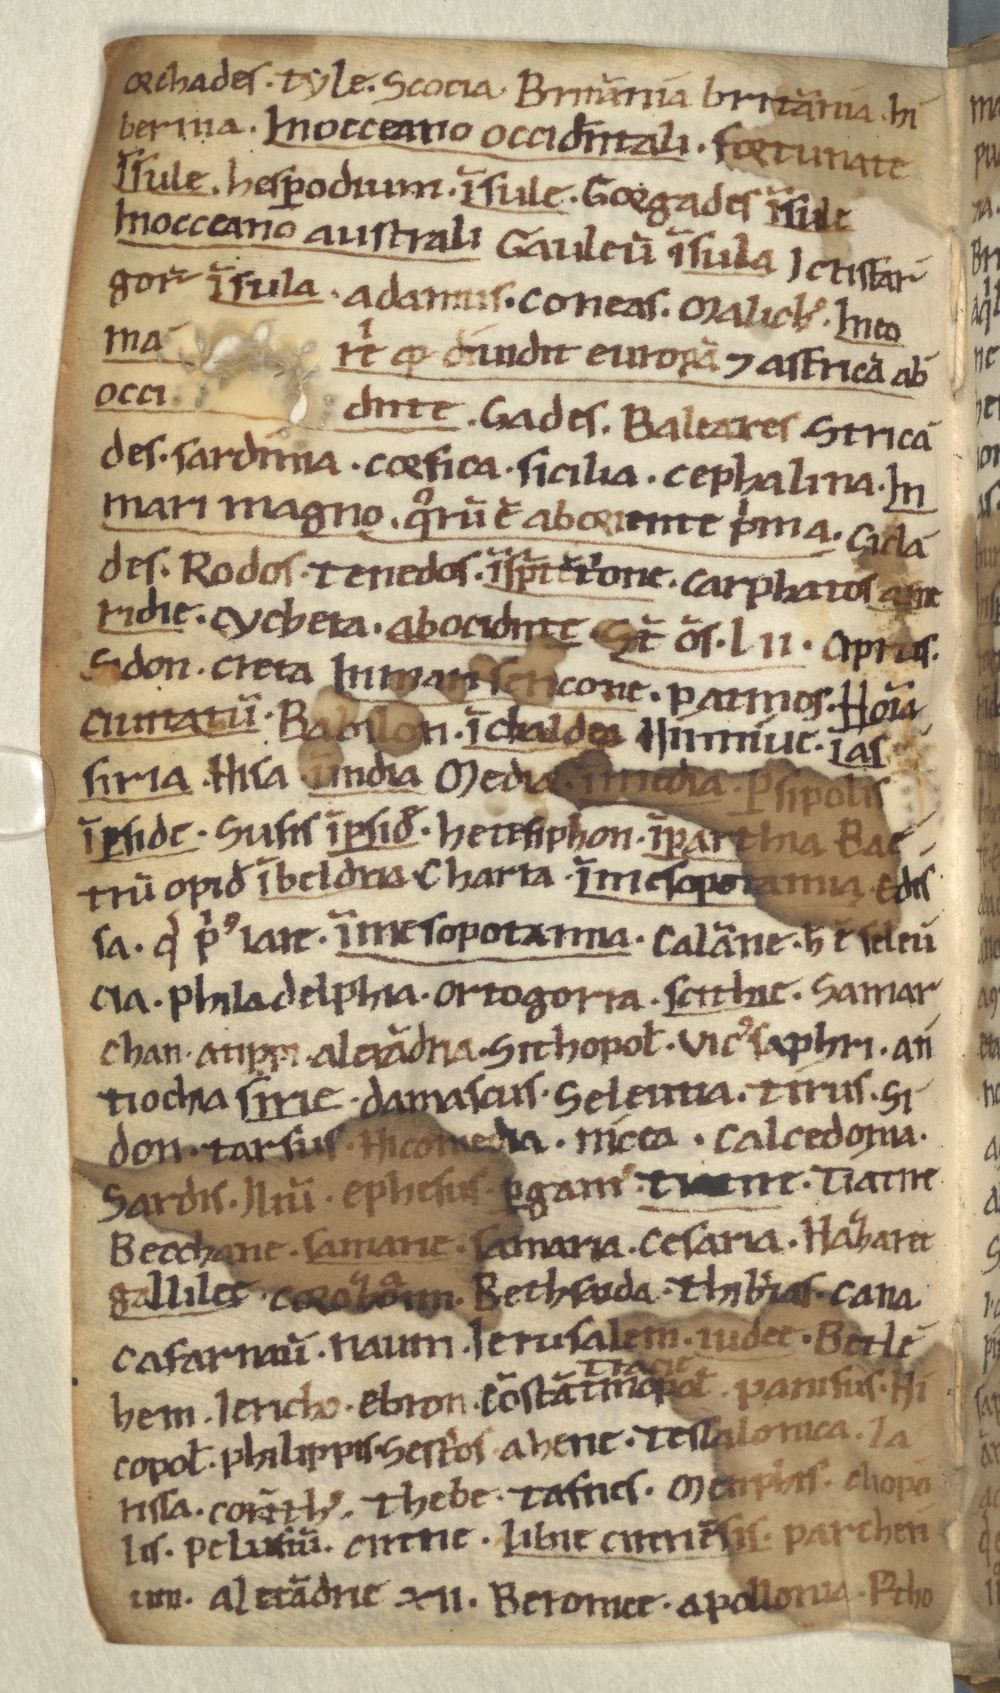 orchades · tyle · Scocia · Britãnia britãnia · hi
bernia · Inocceano occidẽntali · fortunate
ĩsule · hesperodium · ĩsule · Gorgades ĩsule
Inocceano australi Gauleũ ĩsula Ictisfar
gor̃ ĩsula · adamus · coneas · Malichꝰ · Ineo
ma rĩt q̃ diuidit europã ⁊ affricã ab
occi dñte · Gades · Baleares Stricã
des · sardinia · corsica · sicilia · cephalina · In
mari magno · qͦrũ ẽ aboriente p̃ma · Ciclã
des · Rodos · tenedos · carphatos
ridie · cychera · abocidñte · St̃ õs · l ii · Ciprus ·
Sidon · creta Inmari · patmos · Noĩa
ciuitatũ · Babilon · ĩ chaldea Niniue · ĩ as
siria · Nisa · ĩindia Media · ĩ media · Psipolis
ĩpside · Susis ĩpsid̃ · hetesiphon · ĩparthia Bac
trũ opid̃ ĩ Charra · ĩmesopotamia · Edis
sa · ĩmesopotamia · Calãne · h̃ ẽ seleũ
cia · philadelphia · ortogorra · scithie · Samar
chan · alexãdria · Sithopol̃ · saphri · an
tiochia sirie · damascus · Seleucia · tirus · Si
don · tarsus · Nicomedia · nicea · calcedonia ·
Sardis · Iliũ · ephesus · pgamꝰ · Tiatire
Becchane · samarie · samaria · cesaria · Nazaret
gallilee · Bethsaida · thibrias · cana ·
cafarnaũ · naum · Ierusalem · iudee · Betlẽ
tracie
hem · Iericho · ebron · Cõstãtinopol̃ · parisius · Ni
copol̃ · philippis · Sestos · ahene · tessalonica · La
rissa · corĩthꝰ · thebe · tafnes · Memphis · eliopo
lis · pelusiũ · cirene · libie cirenẽsis · partheni
um · alexãdrie xii · Beronice · apollonia · Ptho